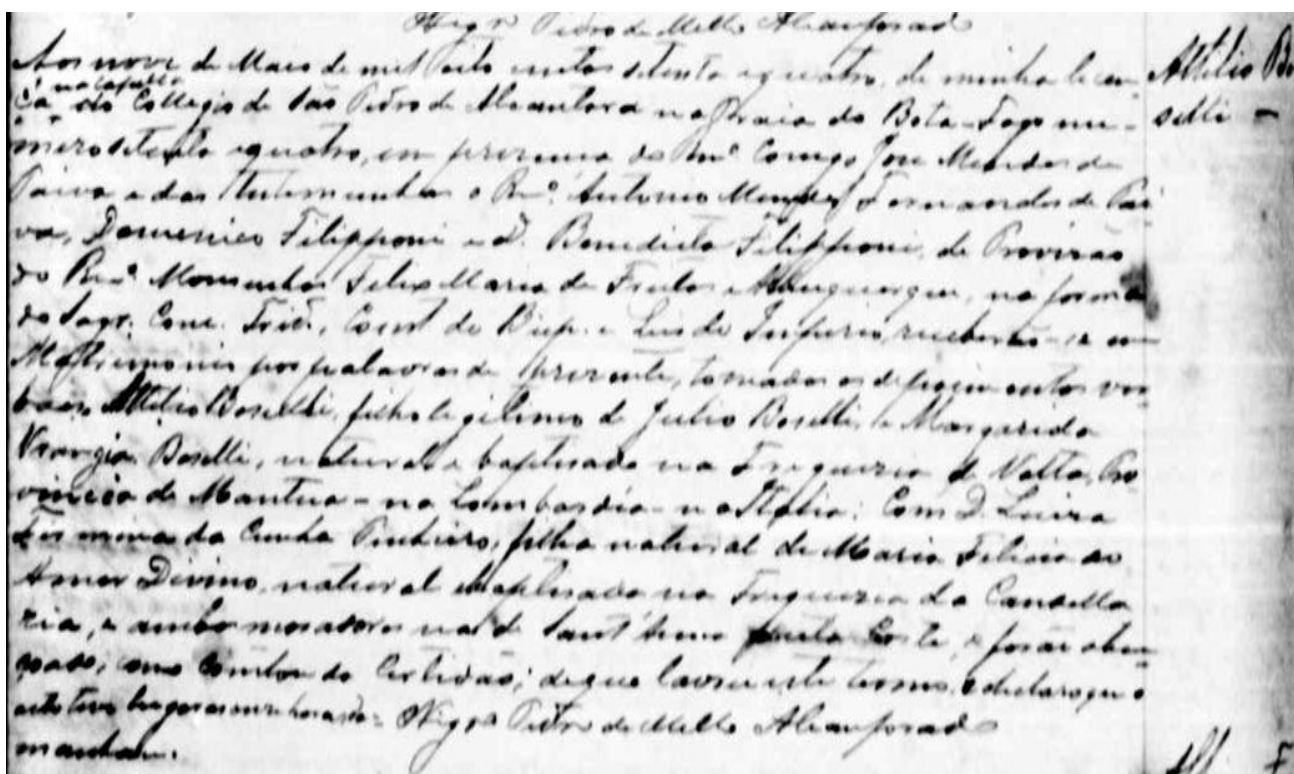 Vigrº Pedro de Mello Alcanforado
Aos nove de Maio de mil oito centos setenta e quatro, de minha licen-
ça, na Capella do Collegio de São Pedro de Alcantara na Praia do Bota-Fogo nu-
mero setenta e quatro, em presença do Rmº Conego José Mendes de
Paiva e das testemunhas o Rmº Antonio Mendes Fernandes de Pai-
va, Domenico Filipponi e D. Benedicta Filipponi, de Provisão
do Rmº Monsenhor Felix Maria de Freitas e Albuquerque, na forma
do Sagr. Conc. Trid., Const. do Bisp. e Leis do Imperio, receberão-se em
Matrimonio por palavras de presente, tomados os depoimentos ver-
baes, Attilio Boselli, filho legitimo de Julio Boselli, e Margarida
Boselli, natural e baptisado na Freguezia de Volta, Pro-
vincia de Mantua - na Lombardia - na Italia: Com D. Luiza
da Cunha Pinheiro, filha natural de Maria Felicia do
Amor Divino, natural e baptisada na Freguezia da Candella-
ria, e ambos moradores na de Sant'Anna nesta Corte, e forão aben-
çoados; como constou da Certidão; de que lavrei este termo, e declaro que o
acto teve lugar as onze horas da = Vigrº Pedro de Mello Alcanforado
manhan.
Attilio Bo
selli =